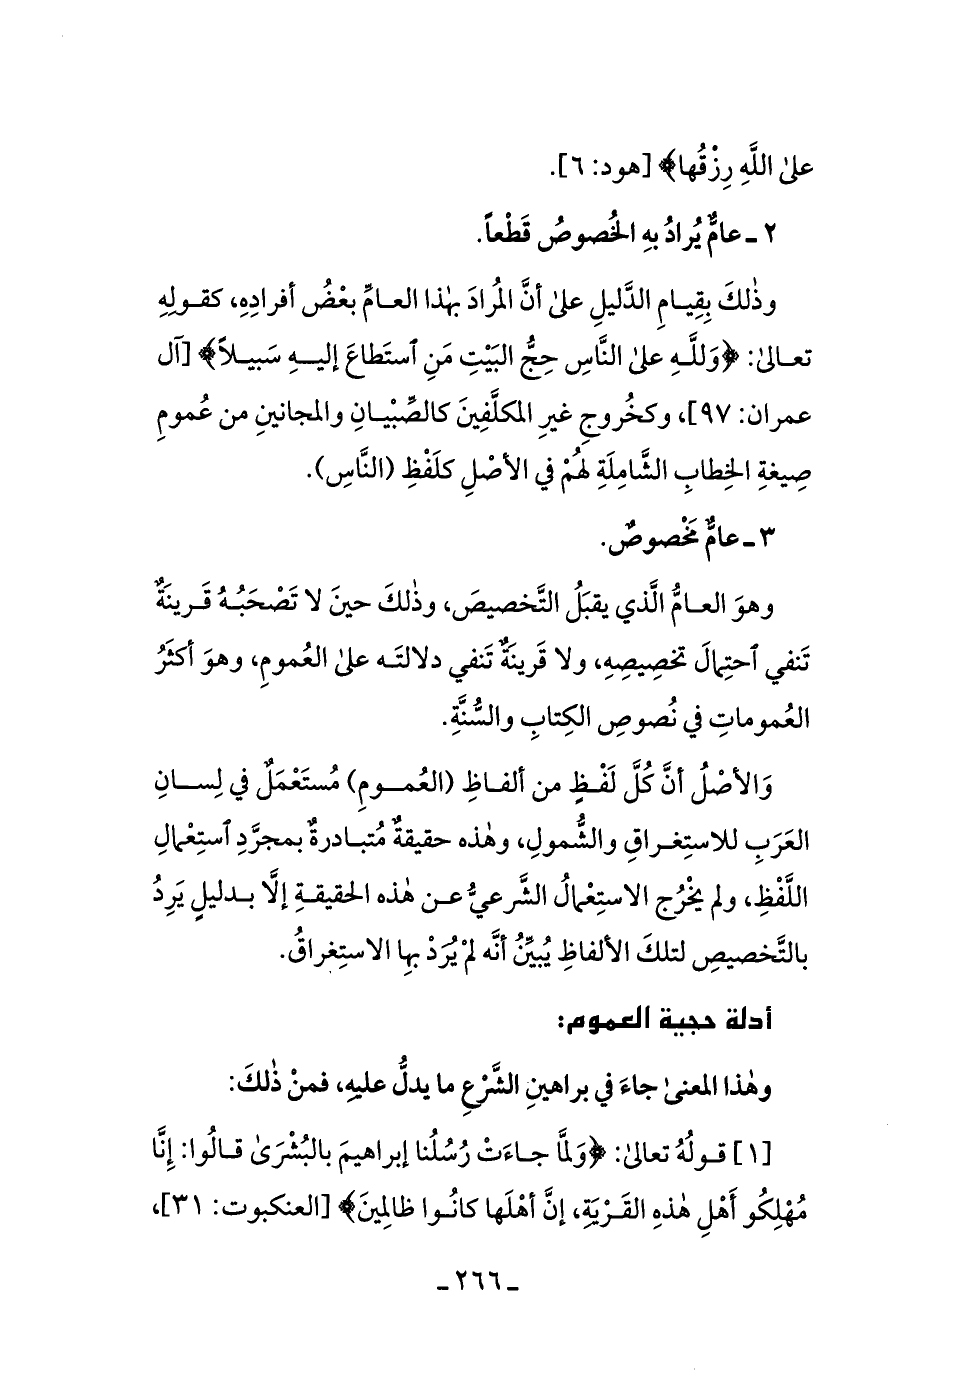 علىٰ اللَّهِ رِزْقُها﴾ [هود: ٦].
٢ ـ عامٌّ يُرادُ بهِ الخُصوصُ قَطْعاً.
وذٰلكَ بِقِيـامِ الدَّليلِ علىٰ أنَّ المُرادَ بهٰذا العـامِّ بعْضُ أفرادِهِ، كقـولِهِ
تعـالىٰ: ﴿وَللَّـهِ علىٰ النَّاسِ حِجُّ البَيْتِ مَنِ ٱستَطاعَ إليـهِ سَبيـلاً﴾ [آل
عمران: ٩٧]، وكخُروجِ غيرِ المكلَّفِينَ كالصِّبْيَـانِ والمجانينِ من عُمومِ
صِيغةِ الخِطابِ الشَّامِلَةِ لهُمْ في الأصْلِ كلَفْظِ (النَّاسِ).
٣ ـ عامٌّ مخْصوصٌ.
وهوَ العـامُّ الَّذي يقبَلُ التَّخصيصَ، وذٰلكَ حينَ لا تَصْحَبُـهُ قَـرينَةٌ
تَنفي ٱحتِمالَ تخصِيصِهِ، ولا قَرينَةٌ تَنفي دلالتَـه علىٰ العُمومِ، وهوَ أكثَرُ
العُموماتِ في نُصوصِ الكِتابِ والسُّنَّةِ.
وَالأصْلُ أنَّ كُلَّ لَفْـظٍ من ألفـاظِ (العُمـومِ) مُستَعْمَلٌ في لِسـانِ
العَرَبِ للاستِغـراقِ والشُّمولِ، وهٰذه حقيقةٌ مُتبـادرةٌ بمجرَّدِ ٱستِعْمالِ
اللَّفْظِ، ولم يخْرُج الاستِعْمالُ الشَّرعيُّ عـن هٰذه الحقيقـةِ إلَّا بـدليلٍ يَرِدُ
بالتَّخصيصِ لتلكَ الألفاظِ يُبيِّنُ أنَّه لمْ يُرَدْ بها الاستِغراقُ.
أدلة حجية العموم:
وهٰذا المعنىٰ جاءَ في براهينِ الشَّرْعِ ما يدلُّ عليهِ، فمنْ ذٰلكَ:
[١] قـولُهُ تعالىٰ: ﴿وَلَمَّا جـاءَتْ رُسُلُنا إبراهيمَ بالبُشْرَىٰ قـالُوا: إنَّا
مُهْلِكُو أَهْلِ هٰذهِ القَـرْيَةِ، إنَّ أهْلَها كانُـوا ظالِمينَ﴾ [العنكبوت: ٣١]،
ـ ٢٦٦ ـ